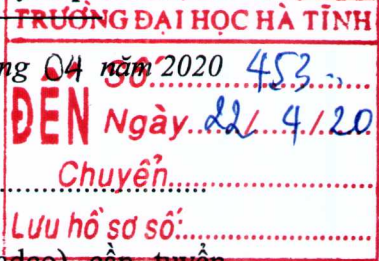 TRƯỜNG ĐẠI HỌC HÀ TĨNH
ng 04 năm 2020
Số: 453
ĐẾN Ngày 22/4/20
Chuyển
Lưu hồ sơ số:
cần tuyển